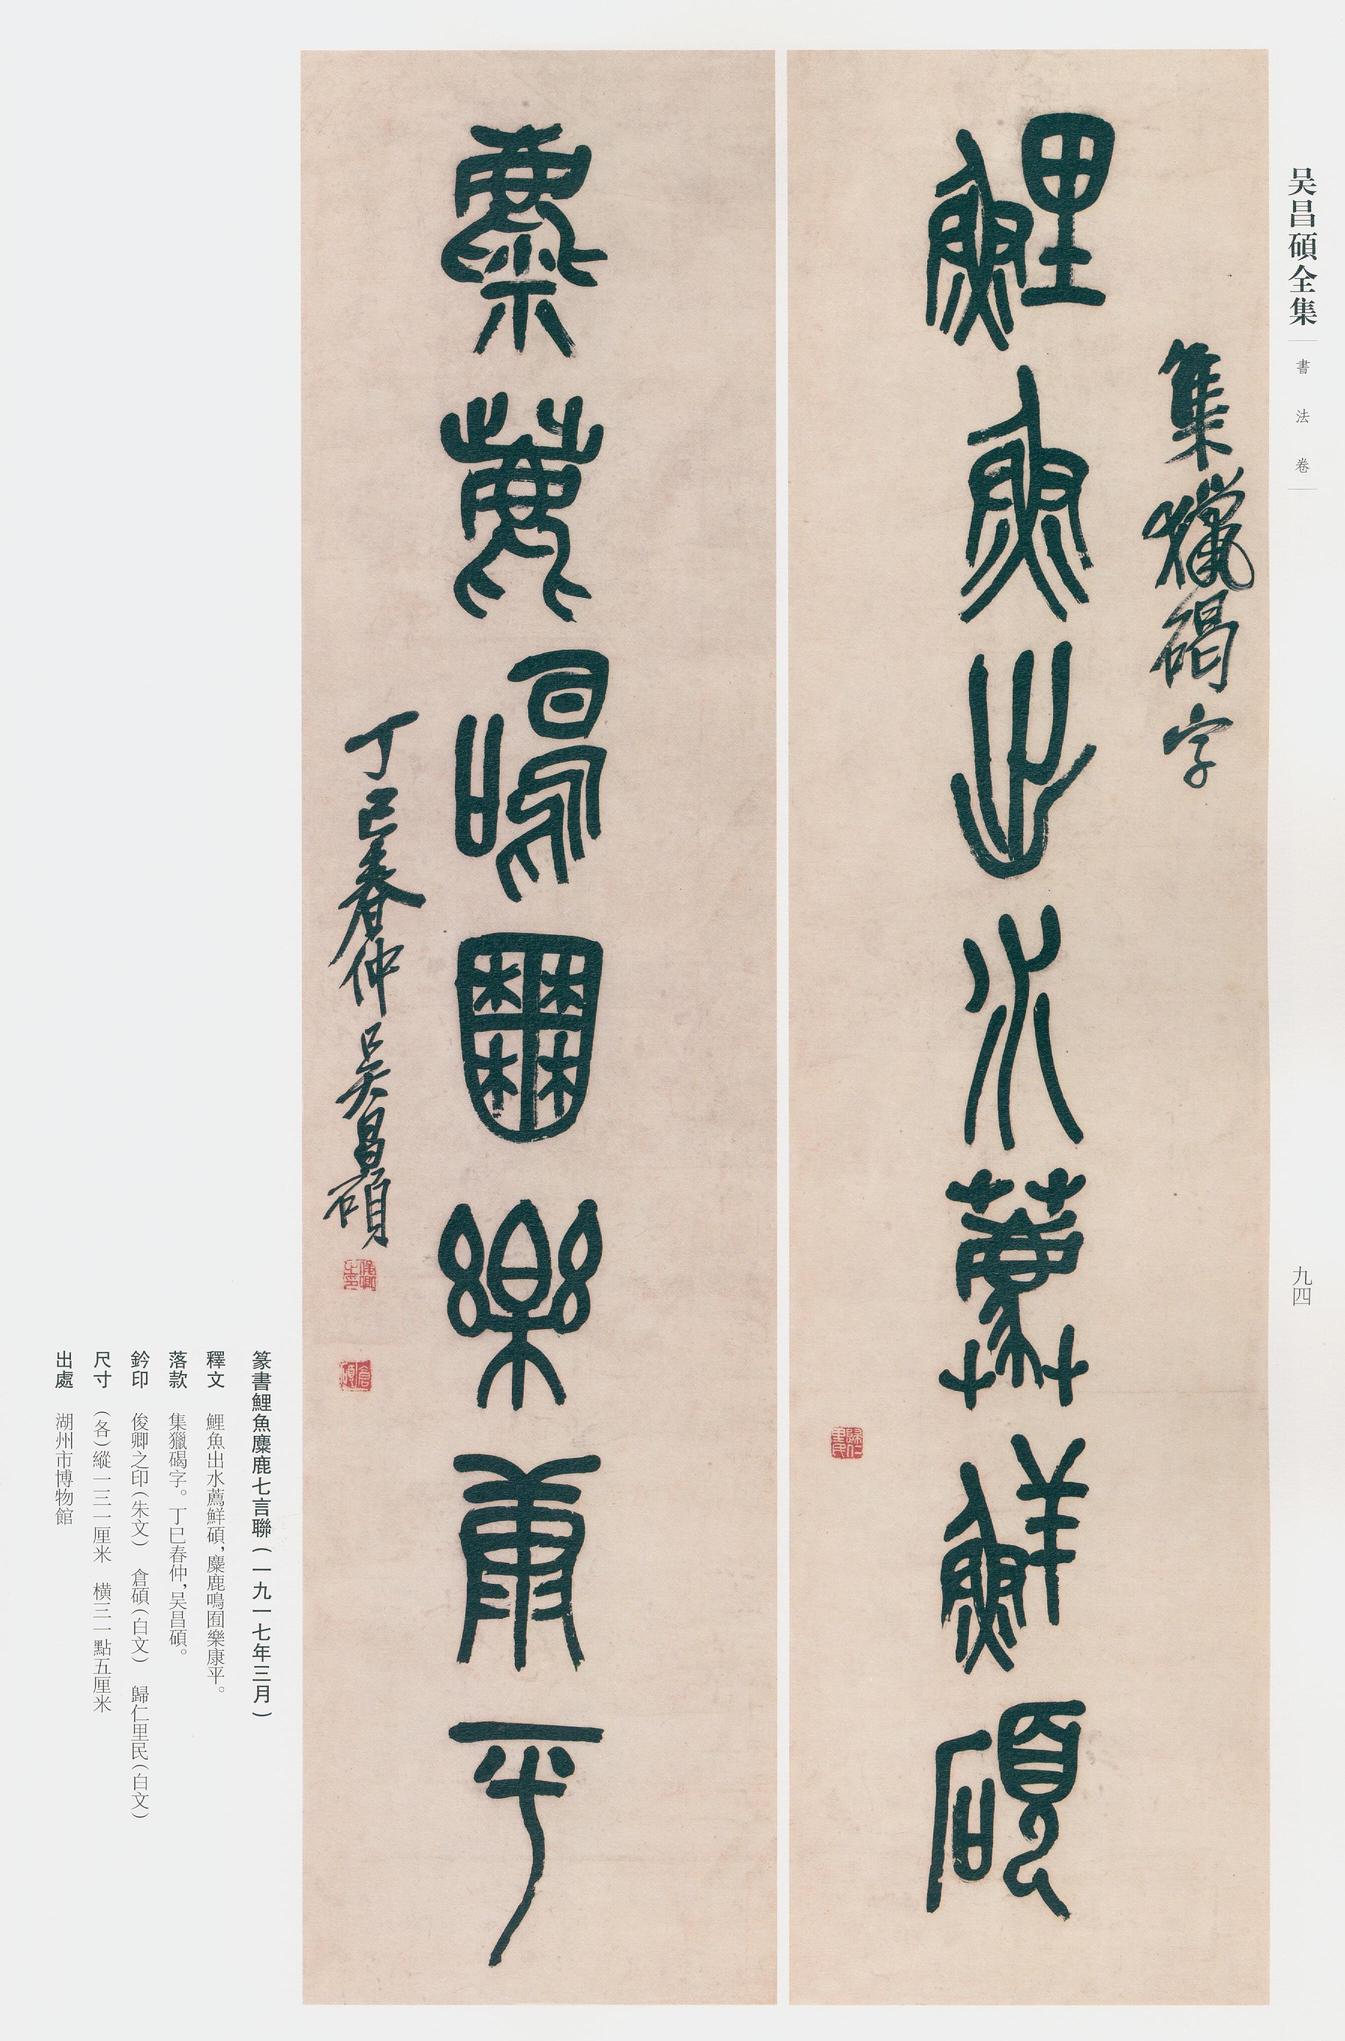 吴昌碩全集
書法卷
九四
集獵碣字
鯉魚出水薦鮮碩
歸仁里民
麋鹿鳴囿樂康平
丁巳春仲吴昌碩
俊卿之印
倉碩
篆書鯉魚麋鹿七言聯(一九一七年三月)
釋文 鯉魚出水薦鮮碩，麋鹿鳴囿樂康平。
落款 集獵碣字。丁巳春仲，吴昌碩。
鈐印 俊卿之印(朱文) 倉碩(白文) 歸仁里民(白文)
尺寸 (各)縱一三一厘米 橫三一點五厘米
出處 湖州市博物館